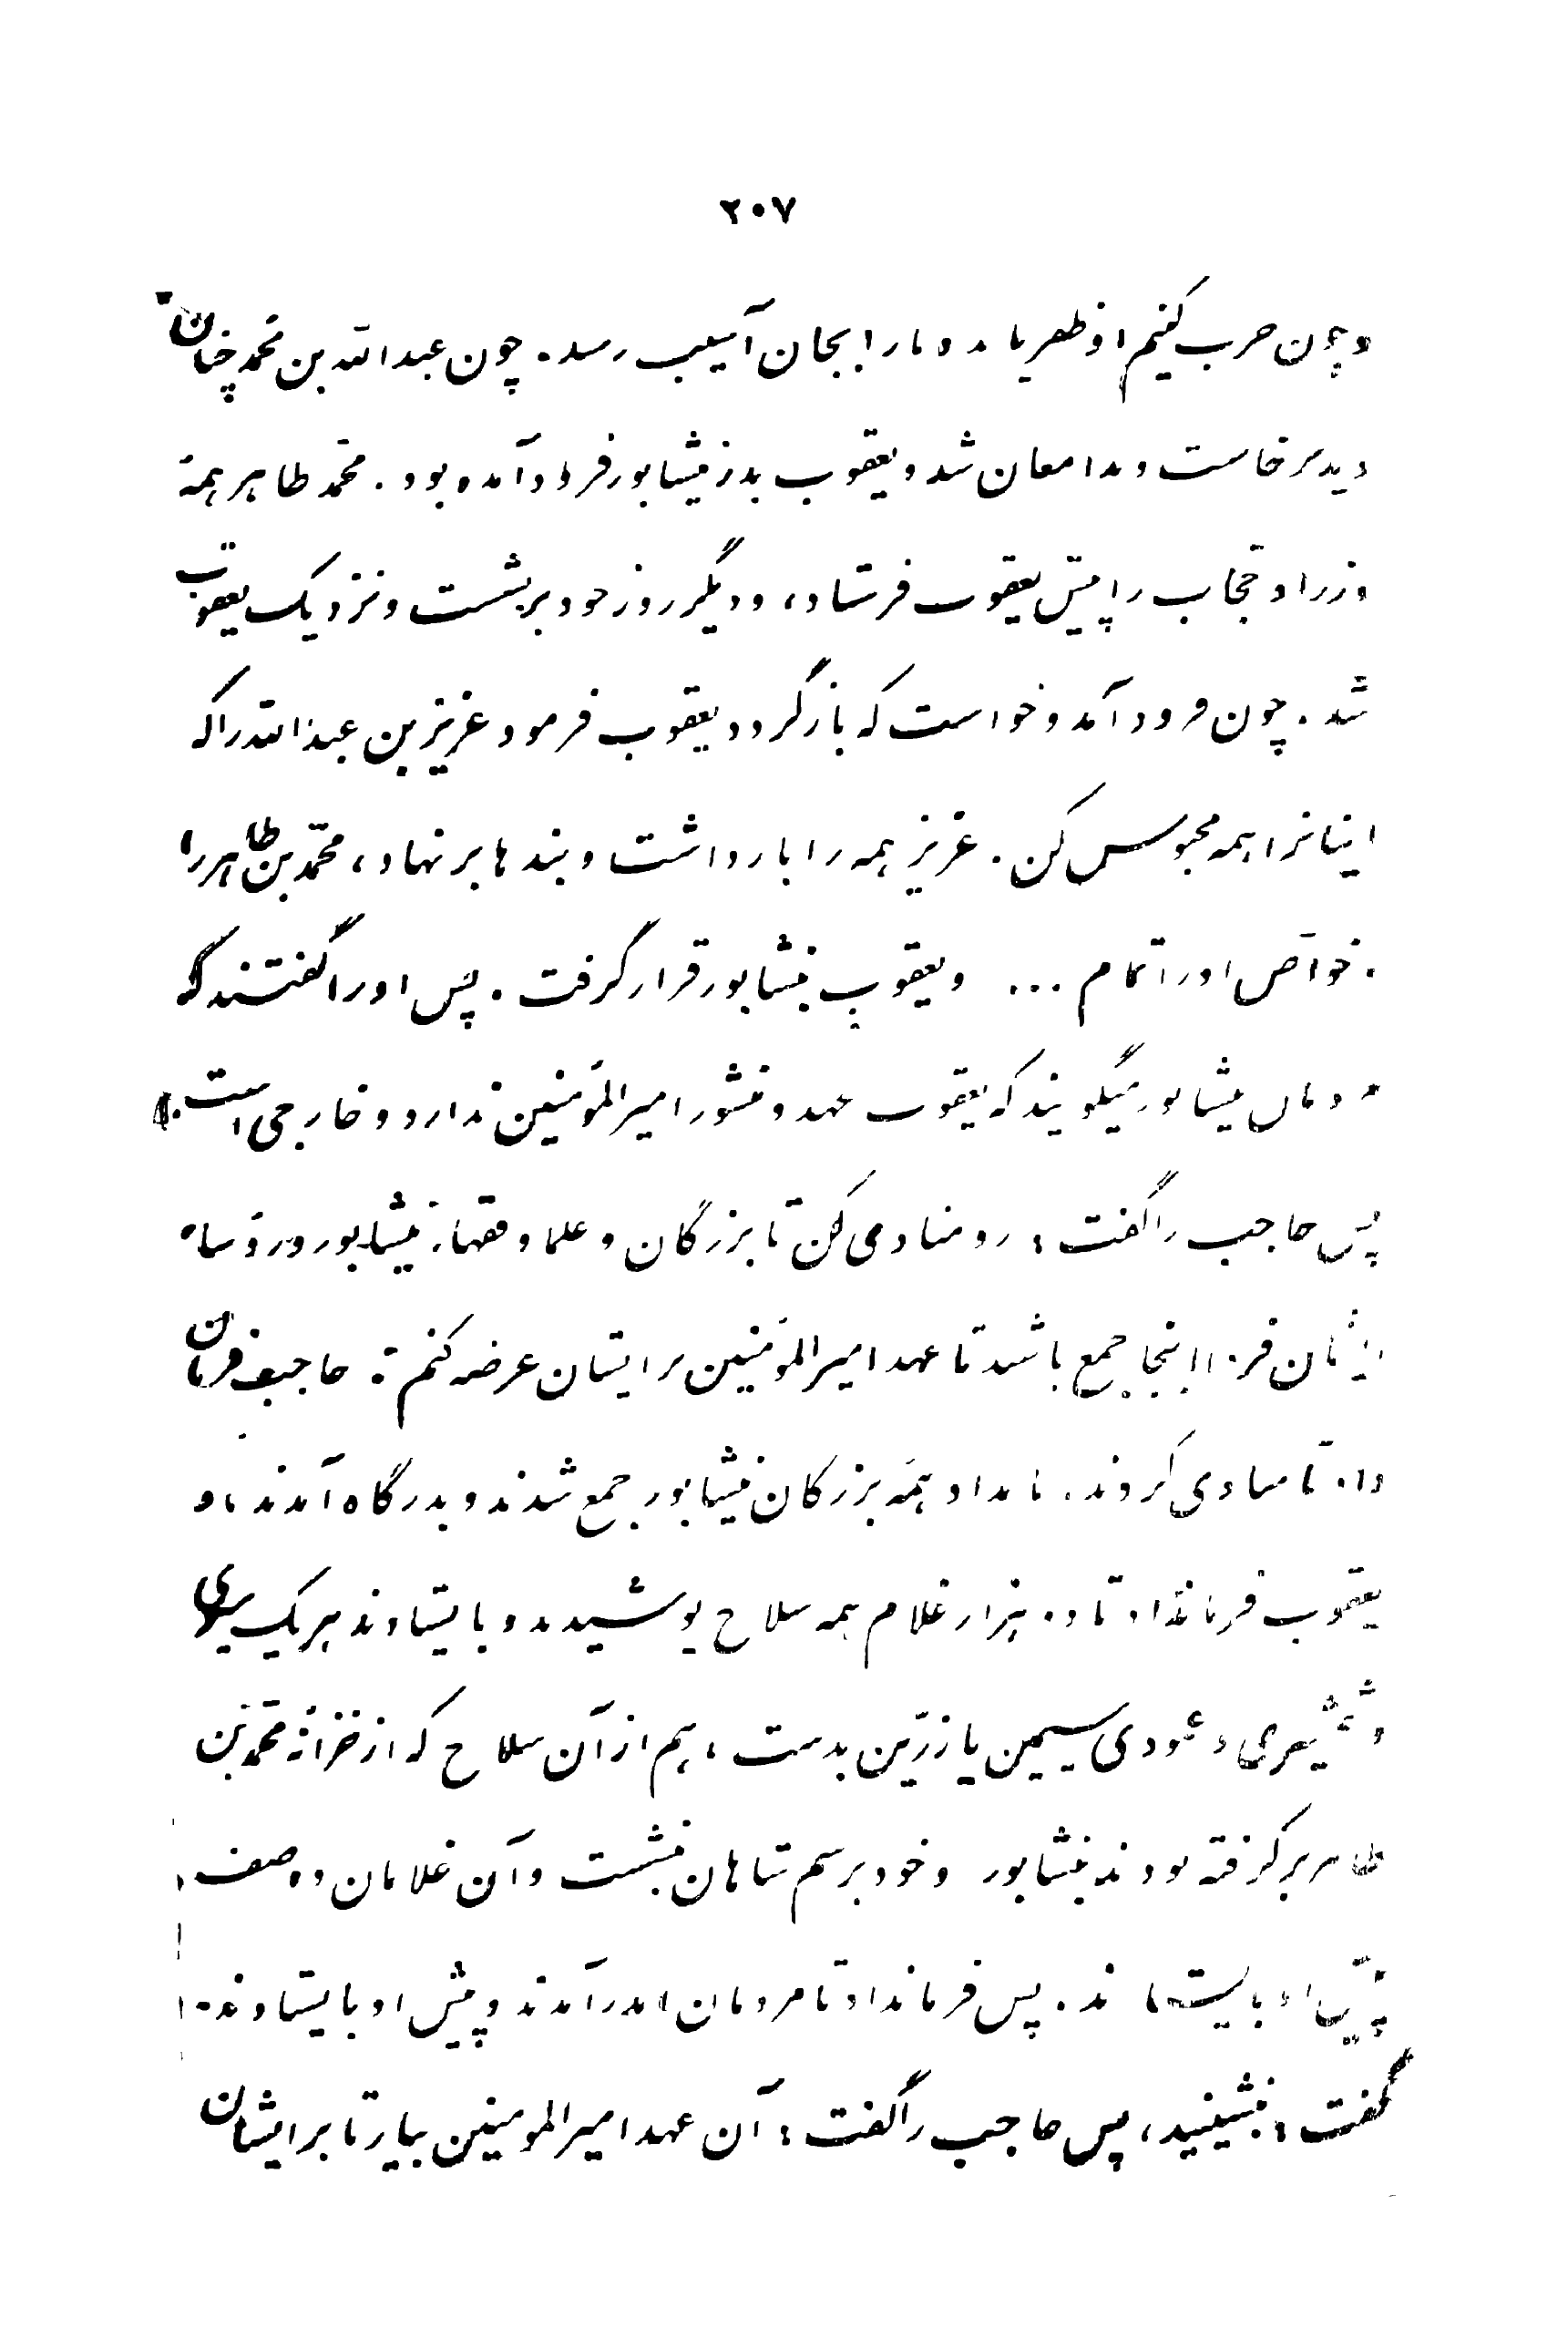 ۲۰۷
و چون حرب کنیم او ظفر یابد و ما را بجان آسیب رسد. چون عبدالله بن محمد چنان
دید برخاست و بدامغان شد و یعقوب بدر نیشابور فرود آمده بود. محمد طاهر همهٔ
وزرا و حجاب را پیش یعقوب فرستاد، و دیگر روز خود برنشست و نزدیک یعقوب
شد. چون فرود آمد و خواست که بازگردد یعقوب فرمود عزیز بن عبدالله را که
اینانرا همه محبوس کن. عزیز همه را بازداشت و بندها برنهاد، محمد بن طاهر را
و خواص او را تمام ... و یعقوب بنیشابور قرار گرفت. پس او را گفتند که
مردمان نیشابور میگویند که یعقوب عهد و منشور امیرالمؤمنین ندارد و خارجی است.
پس حاجب را گفت: رو منادی کن تا بزرگان و علما و فقهاء نیشابور و رؤساء
ایشان فردا اینجا جمع باشند تا عهد امیرالمؤمنین بر ایشان عرضه کنم: حاجب فرمان
داد تا منادی کردند. بامداد همه بزرگان نیشابور جمع شدند و بدرگاه آمدند، و
یعقوب فرمانداد تا دو هزار غلام همه سلاح پوشیدند و بایستادند هر یک سپری
و شمشیری و عمودی سیمین یا زرین بدست، هم از آن سلاح که از خزانهٔ محمد بن
طاهر برگرفته بودند بنیشابور و خود برسم شاهان بنشست و آن غلامان دو صف
پیش او بایستادند. پس فرمانداد تا مردمان اندر آمدند و پیش او بایستادند.
گفت: بنشینید، پس حاجب را گفت: آن عهد امیرالمومنین بیار تا بر ایشان